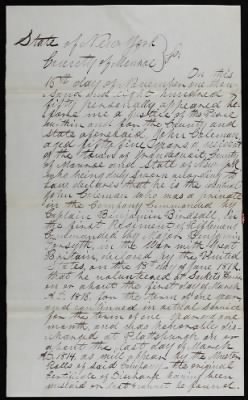 State of New York
County of Monroe } ss.
On this
15th day of November one thou
sand and eight hundred &
fifty personally appeared be
fore me a Justice of the Peace
within and for the County and
State aforesaid John Coleman
aged fifty five years a resident
of the town of County
of Monroe and State of New York
who being duly sworn according to
law declares that he is the identical
John Coleman who was a private
in the Company Commanded by
Captain Benjamin Birdsall, in
the first Regiment of Riflemen
Commanded by Major Benjamin
Forsyth, in the War with Great
Britain, declared by the United
States, on the 18th day of June 1812,
that he volunteered at
in or about the first day of March
A.D. 1813. for the term of one year
and continued in actual service
for the term of one year and one
month, and was honorably dis
charged at Plattsburgh on or
about the last day of March
A.D. 1814. as will appear by the Muster
Rolls of said Company. The original
Certificate of Discharge having been
mislaid or lost cannot be found.